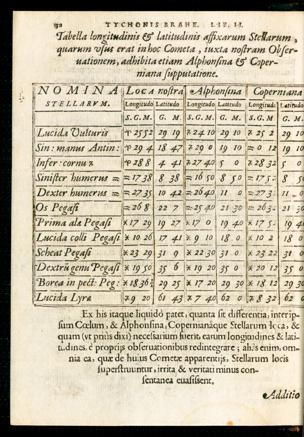 TYCHONIS BRAHE. LIB. II.
Tabella longitudinis & latitudinis affixarum Stellarum,
quarum vsus erat in hoc Cometa, iuxta nostram Obser-
uationem, adhibita etiam Alphonsina & Coper-
niana supputatione.
NOMINA Loca nostra Alphonsina Coperniana
STELLARVM. Longitudo Latitudo Longitudo Latitudo Longitudo Latitudo
S. G. M. G. M. S. G. M. G. M. S. G. M. G. M.
Lucida Vulturis 29 19 24 10 29 10 25 2 29 10
Sin: manus Antin: 29 4 18 47 29 0 19 10 0 12 19 10
Infer: cornu 28 8 4 41 27 40 5 0 28 32 5 0
Sinister humerus 17 38 8 38 16 50 8 50 8 50
Dexter humerus 27 35 10 42 26 40 11 0
Os Pegasi 26 8 22 7 25 40 21 30 21 30
Prima alæ Pegasi 17 29 19 27 17 0 19 40 19 40
Lucida colli Pegasi 10 26 17 41 9 10 18 0 10 2 18 0
Scheat Pegasi 23 29 31 9 22 30 31 0 23 22 31 0
Dextrũ genu Pegasi 19 50 35 6 19 20 35 0 20 12 35 0
Borea in pect: Peg: 29 25 17 20 29 30 18 12 29 30
Lucida Lyræ 9 20 61 43 7 40 62 0 8 32 62 0
Ex his itaque liquidò patet, quanta sit differentia, interip-
sum Cœlum, & Alphonsina, Copernianáque Stellarum loca, &
quam (vt priùs dixi) necessarium fuerit earum longitudines & lati-
tudines è proprijs obseruationibus redintegrare; aliàs enim, om-
nia ea, quæ de huius Cometæ apparentijs, Stellarum locis
superstruuntur, irrita & veritati minus con-
sentanea euasissent.
Additio